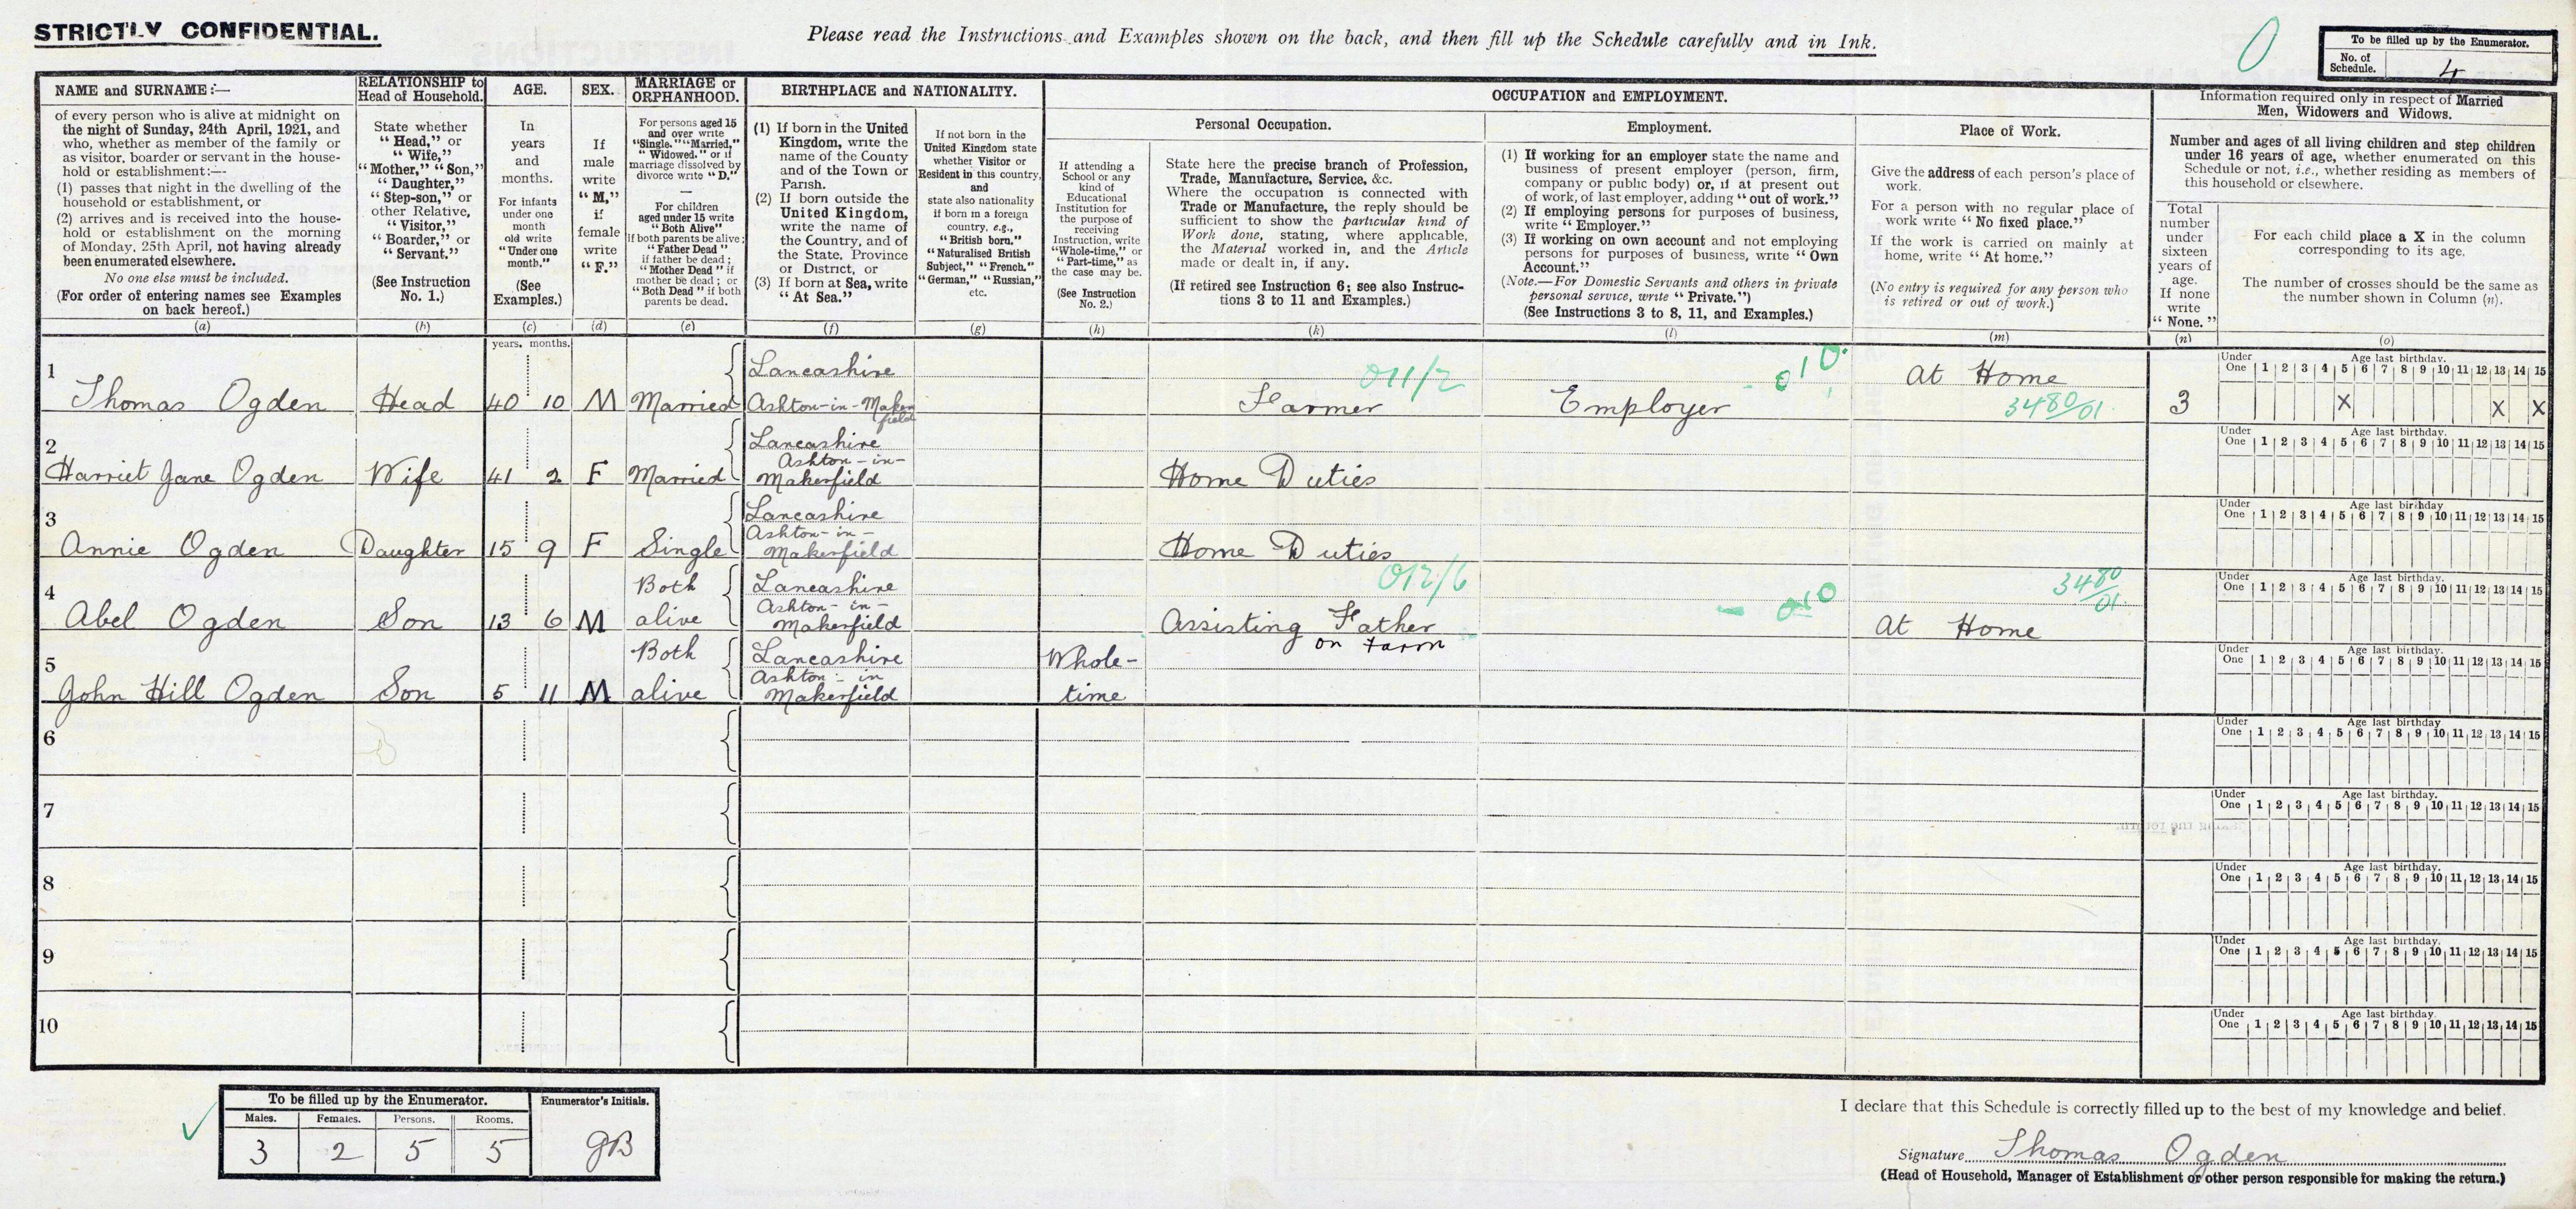 STRICTLY CONFIDENTIAL.
Please read the Instructions and Examples shown on the back, and then fill up the Schedule carefully and in Ink.
0
To be filled up by the Enumerator.
No. of Schedule. 4
NAME and SURNAME:—
of every person who is alive at midnight on
the night of Sunday, 24th April, 1921, and
who, whether as member of the family or
as visitor, boarder or servant in the house-
hold or establishment:—
(1) passes that night in the dwelling of the
household or establishment, or
(2) arrives and is received into the house-
hold or establishment on the morning
of Monday, 25th April, not having already
been enumerated elsewhere.
No one else must be included.
(For order of entering names see Examples
on back hereof.)
(a)
RELATIONSHIP to
Head of Household.
State whether
"Head," or
"Wife,"
"Mother," "Son,"
"Daughter,"
"Step-son," or
other Relative,
"Visitor,"
"Boarder," or
"Servant."
(See Instruction
No. 1.)
(b)
AGE.
In
years
and
months.
For infants
under one
month
old write
"Under one
month."
(See
Examples.)
(c)
SEX.
If
male
write
"M,"
if
female
write
"F."
(d)
MARRIAGE or
ORPHANHOOD.
For persons aged 15
and over write
"Single," "Married,"
"Widowed," or if
marriage dissolved by
divorce write "D."
—
For children
aged under 15 write
"Both Alive"
if both parents be alive;
"Father Dead"
if father be dead;
"Mother Dead" if
mother be dead; or
"Both Dead" if both
parents be dead.
(e)
BIRTHPLACE and NATIONALITY.
(1) If born in the United
Kingdom, write the
name of the County
and of the Town or
Parish.
(2) If born outside the
United Kingdom,
write the name of
the Country, and of
the State, Province
or District, or
(3) If born at Sea, write
"At Sea."
(f)
If not born in the
United Kingdom state
whether Visitor or
Resident in this country,
and
state also nationality
if born in a foreign
country, e.g.,
"British born,"
"Naturalised British
Subject," "French,"
"German," "Russian,"
etc.
(g)
OCCUPATION and EMPLOYMENT.
Personal Occupation.
If attending a
School or any
kind of
Educational
Institution for
the purpose of
receiving
Instruction, write
"Whole-time," or
"Part-time," as
the case may be.
(See Instruction
No. 2.)
(h)
State here the precise branch of Profession,
Trade, Manufacture, Service, &c.
Where the occupation is connected with
Trade or Manufacture, the reply should be
sufficient to show the particular kind of
Work done, stating, where applicable,
the Material worked in, and the Article
made or dealt in, if any.
(If retired see Instruction 6; see also Instruc-
tions 3 to 11 and Examples.)
(k)
Employment.
(1) If working for an employer state the name and
business of present employer (person, firm,
company or public body) or, if at present out
of work, of last employer, adding "out of work."
(2) If employing persons for purposes of business,
write "Employer."
(3) If working on own account and not employing
persons for purposes of business, write "Own
Account."
(Note.—For Domestic Servants and others in private
personal service, write "Private.")
(See Instructions 3 to 8, 11, and Examples.)
(l)
Place of Work.
Give the address of each person's place of
work.
For a person with no regular place of
work write "No fixed place."
If the work is carried on mainly at
home, write "At home."
(No entry is required for any person who
is retired or out of work.)
(m)
Information required only in respect of Married
Men, Widowers and Widows.
Number and ages of all living children and step children
under 16 years of age, whether enumerated on this
Schedule or not, i.e., whether residing as members of
this household or elsewhere.
Total
number
under
sixteen
years of
age.
If none
write
"None."
(n)
For each child place a X in the column
corresponding to its age.
The number of crosses should be the same as
the number shown in Column (n).
(o)
years. months.
1 Thomas Ogden Head 40 10 M Married Lancashire Ashton-in-Makerfield 011/2 Farmer 010 Employer At Home 3480/01 3
Under One Age last birthday. 1 2 3 4 5 6 7 8 9 10 11 12 13 14 15
X X X
2 Harriet Jane Ogden Wife 41 2 F Married Lancashire Ashton-in-Makerfield Home Duties
Under One Age last birthday. 1 2 3 4 5 6 7 8 9 10 11 12 13 14 15
3 Annie Ogden Daughter 15 9 F Single Lancashire Ashton-in-Makerfield Home Duties
Under One Age last birthday. 1 2 3 4 5 6 7 8 9 10 11 12 13 14 15
4 Abel Ogden Son 13 6 M Both alive Lancashire Ashton-in-Makerfield 012/6 Assisting Father on farm 010 At Home 3480/01
Under One Age last birthday. 1 2 3 4 5 6 7 8 9 10 11 12 13 14 15
5 John Hill Ogden Son 5 11 M Both alive Lancashire Ashton-in Makerfield Whole-time
Under One Age last birthday. 1 2 3 4 5 6 7 8 9 10 11 12 13 14 15
6
Under One Age last birthday 1 2 3 4 5 6 7 8 9 10 11 12 13 14 15
7
Under One Age last birthday. 1 2 3 4 5 6 7 8 9 10 11 12 13 14 15
8
Under One Age last birthday. 1 2 3 4 5 6 7 8 9 10 11 12 13 14 15
9
Under One Age last birthday. 1 2 3 4 5 6 7 8 9 10 11 12 13 14 15
10
Under One Age last birthday. 1 2 3 4 5 6 7 8 9 10 11 12 13 14 15
To be filled up by the Enumerator. Enumerator's Initials.
Males. Females. Persons. Rooms.
3 2 5 5 GB
I declare that this Schedule is correctly filled up to the best of my knowledge and belief.
Signature Thomas Ogden
(Head of Household, Manager of Establishment or other person responsible for making the return.)